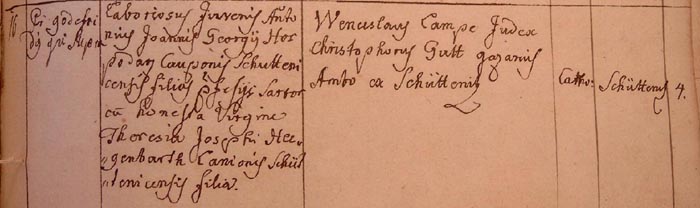 16
Laboriosus Juvenis Anto
nius Joannis Georgij Hos
podarz Cauponis Schütteni
censis filius Professj Sartor
cũ honesta Virgine
Theresia Josephi Hee
genbarth Lanionis Schüt
tenicensis filia.
Wenceslaus Campe Judex
Christophorus Gutt
Ambo ex Schüttenitz
Catho:
Schüttenitz
4.